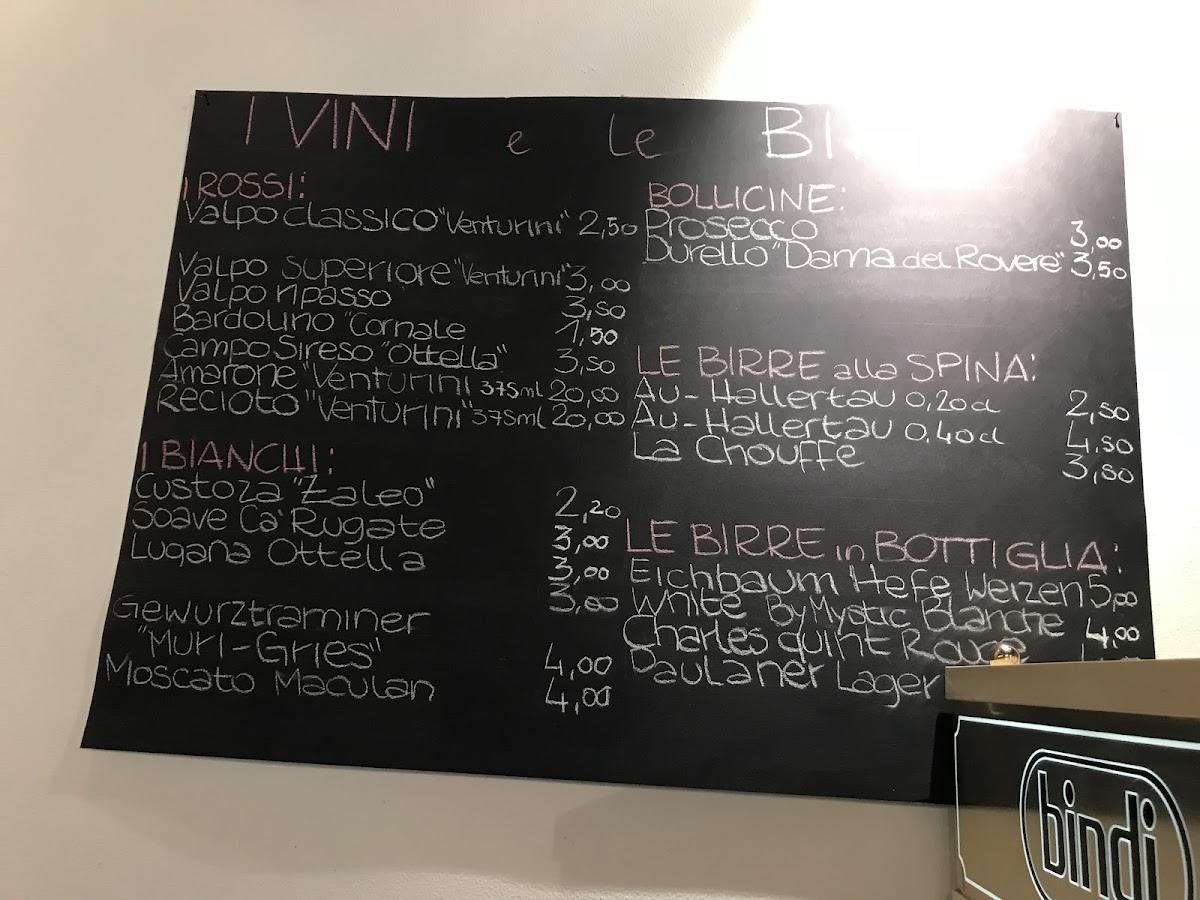 I VINI e le BI
I ROSSI:
Valpo classico "Venturini" 2,50
Valpo Superiore "Venturini" 3,00
Valpo ripasso 3,50
Bardolino "Cornale 1,50
Campo Sireso "Ottella" 3,50
Amarone "Venturini 375ml 20,00
Recioto "Venturini" 375ml 20,00
I BIANCHI:
Custoza "Zaleo" 2,20
Soave Ca' Rugate 3,00
Lugana Ottella 3,00
3,00
Gewurztraminer
"Muri-Gries" 4,00
Moscato Maculan 4,00
BOLLICINE:
Prosecco 3,00
Durello "Dama del Rovere" 3,50
LE BIRRE alla SPINA:
Au-Hallertau 0,20cl 2,50
Au-Hallertau 0,40cl 4,50
La Chouffe 3,50
LE BIRRE in BOTTIGLIA:
Eichbaum Hefe Weizen 5,00
White By Mystic Blanche 4,00
Charles quint Rouge
Paulaner Lager
bindi